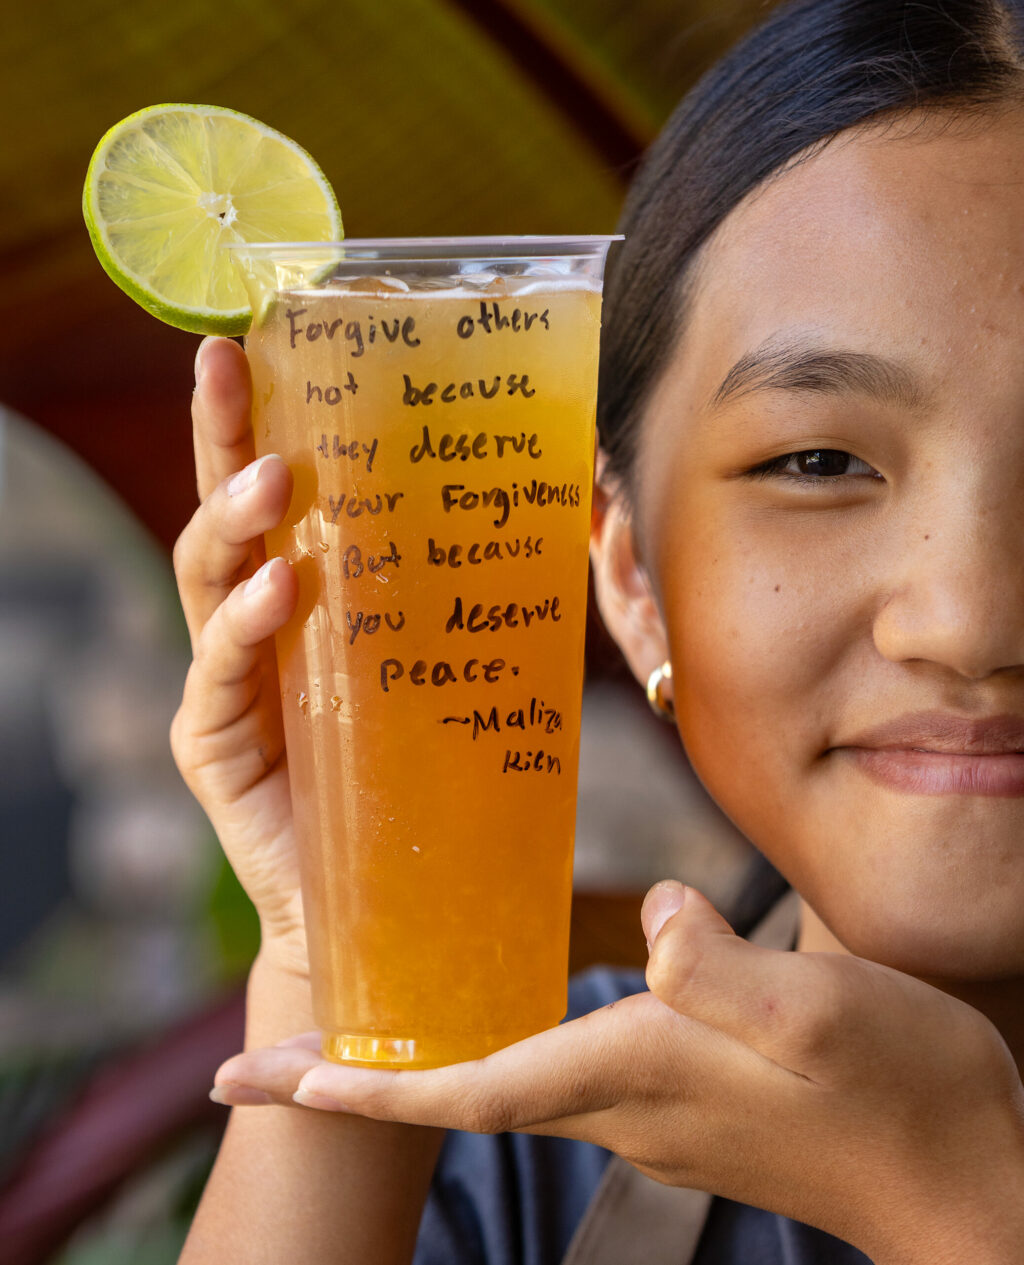 Forgive others
not because
they deserve
your Forgiveness
But because
you deserve
peace.
~Maliza
Kien